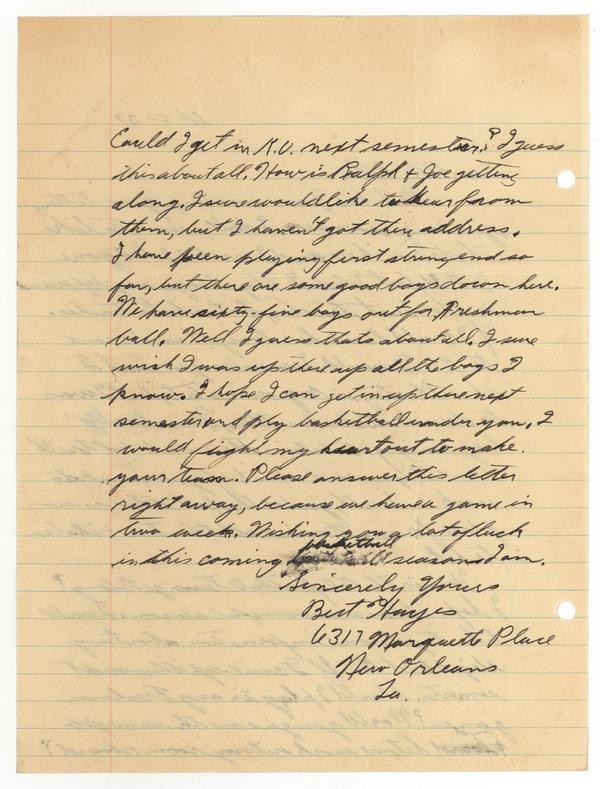 Could I get in K.U. next semester? I guess
this about all. How is Ralph & Joe getting
along. I sure would like to hear from
them, but I haven't got their address.
I have been playing first string end so
far, but there are some good boys down here.
We have sixty-five boys out for Freshman
ball. Well I guess thats about all. I sure
wish I was up there up all the boys I
know. I hope I can get in up there next
semester and ply basketball under you. I
would fight my heart out to make
your team. Please answer this letter
right away, because we have a game in
two week. Wishing you a lot of luck
in this coming basketball season I am.
Sincerely Yours
Bert Hayes
6317 Marquette Place
New Orleans
La.